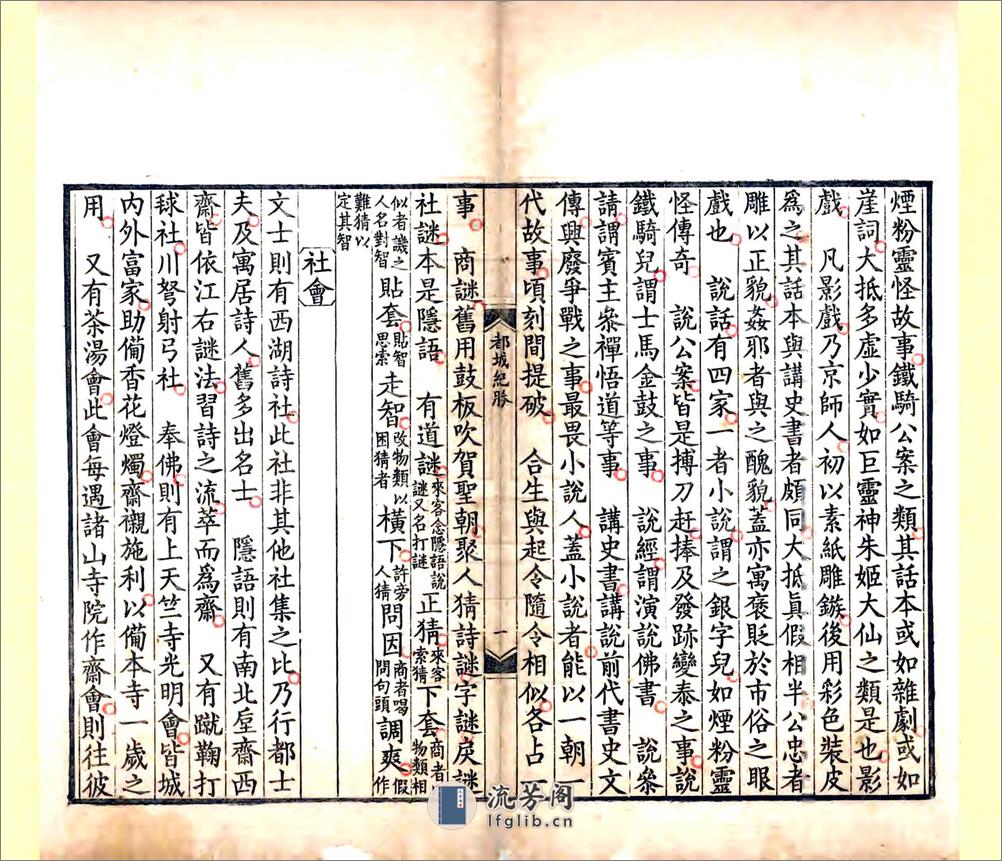 煙粉靈怪故事鐵騎公案之類其話本或如雜劇或如
崖詞大抵多虛少實如巨靈神朱姬大仙之類是也影
戲　凡影戲乃京師人初以素紙雕鏃後用彩色裝皮
爲之其話本與講史書者頗同大抵眞假相半公忠者
雕以正貌姦邪者與之醜貌蓋亦寓褒貶於市俗之眼
戲也　說話有四家一者小說謂之銀字兒如煙粉靈
怪傳奇　說公案皆是搏刀赶捧及發跡變泰之事說
鐵騎兒謂士馬金鼓之事　說經謂演說佛書　說叅
請謂賓主叅禪悟道等事　講史書講說前代書史文
傳興廢爭戰之事最畏小說人蓋小說者能以一朝一
代故事頃刻間提破　合生與起令隨令相似各占一
都城紀勝
一
事　商謎舊用鼓板吹賀聖朝聚人猜詩謎字謎戾謎
社謎本是隱語　有道謎來客念隱語說謎又名打謎正猜來客索猜下套商者以物類相
似者譏之人名對智貼套貼智思索走智改物類以困猜者橫下許旁人猜問因商者喝問句頭調爽假作
難猜以定其智
社會
文士則有西湖詩社此社非其他社集之比乃行都士
夫及寓居詩人舊多出名士　隱語則有南北垕齋西
齋皆依江右謎法習詩之流萃而爲齋　又有蹴鞠打
毬社川弩射弓社　奉佛則有上天竺寺光明會皆城
內外富家助備香花燈燭齋襯施利以備本寺一歲之
用　又有茶湯會此會每遇諸山寺院作齋會則往彼
流芳阁
lfglib.cn